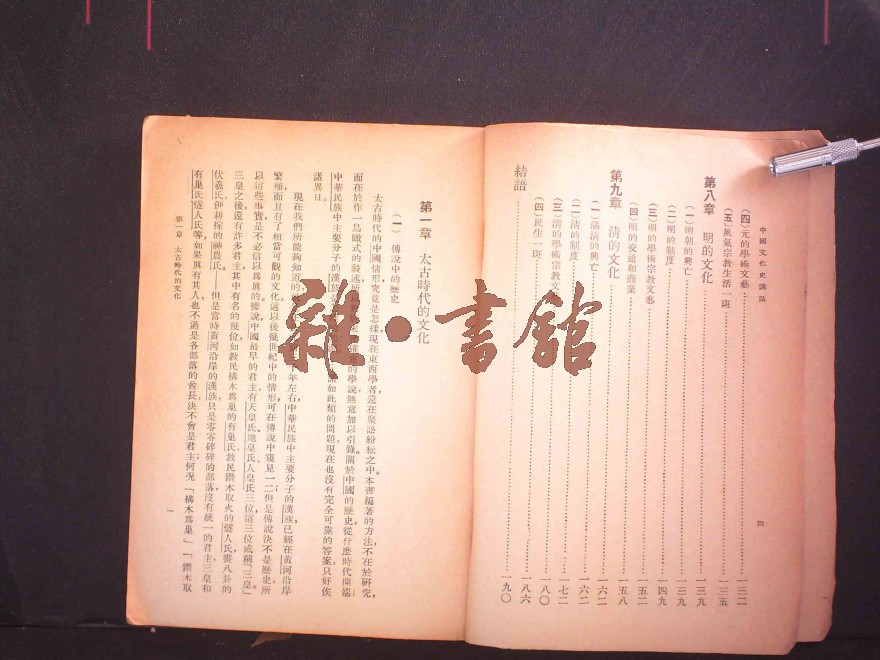 中國文化史講話
(四)元的學術文藝……一三二
(五)風氣宗教生活一斑……一三五
第八章 明的文化……一三九
(一)明朝的興亡……一三九
(二)明的制度……一四九
(三)明的學術宗教文藝……一五二
(四)明的交通和商業……一五八
第九章 清的文化……一六二
(一)滿清的興亡……一六二
(二)清的制度……一七二
(三)清的學術宗教文……一八〇
(四)民生一斑……一八六
結語……一九〇
四
第一章 太古時代的文化
(一)傳說中的歷史
太古時代的中國情形,究竟是怎樣,現在東西學者,還在聚訟紛紜之中。本書編著的方法,不在於研究,
而在於作一鳥瞰式的敘述,所以的學說,無意加以引錄。關於中國的歷史,從什麼時代開端;
中華民族中主要分子的漢族,如此類的問題,現在也沒有完全可靠的答案,只好俟
諸異日。
現在我們所能夠知道的,年左右,中華民族中主要分子的漢族,已經在黃河沿岸
繁殖,而且有了相當可觀的文化。這以後幾世紀中的情形,可在傳說中窺見一二;但是傳說決不是歷史,所
以這些事實是不必信以爲眞的。據說,中國最早的君主,有天皇氏、地皇氏、人皇氏三位,這三位或稱「三皇」。
三皇之後,還有許多君主,其中有名的幾位,如教民構木爲巢的有巢氏,教民鑽木取火的燧人氏,畫八卦的
伏羲氏,創耕稼的神農氏——但是當時黃河沿岸的漢族,只是零零碎碎的部落,沒有統一的君主;三皇和
有巢氏燧人氏等,如果眞有其人,也不過是各部落的酋長,決不會是君主;何況「構木爲巢」「鑽木取
第一章 太古時代的文化
一
雜·書館